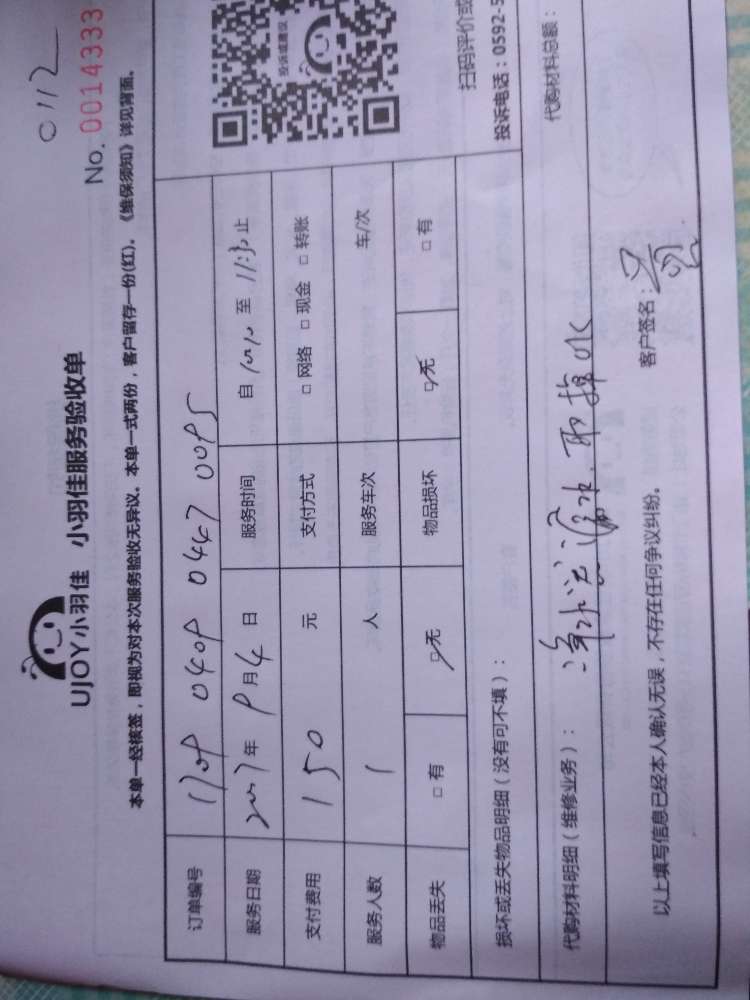 0112
No. 0014333
UJOY小羽佳 小羽佳服务验收单
本单一经核签，即视为对本次服务验收无异议。本单一式两份，客户留存一份(红)。《维保须知》详见背面。
订单编号 1709 0409 0447 0095
服务日期 2017年9月4日 服务时间 自 至 11:30 止
支付费用 150 元 支付方式 □ 网络 □ 现金 □ 转账
服务人数 1 人 服务车次 车/次
物品丢失 □ 有 ☑无 物品损坏 ☑无 □ 有
投诉或建议
扫码评价或
投诉电话：0592-5
损坏或丢失物品明细（没有可不填）：
代购材料明细（维修业务）： 代购材料总额：
净水器漏水
以上填写信息已经本人确认无误，不存在任何争议纠纷。 客户签名：